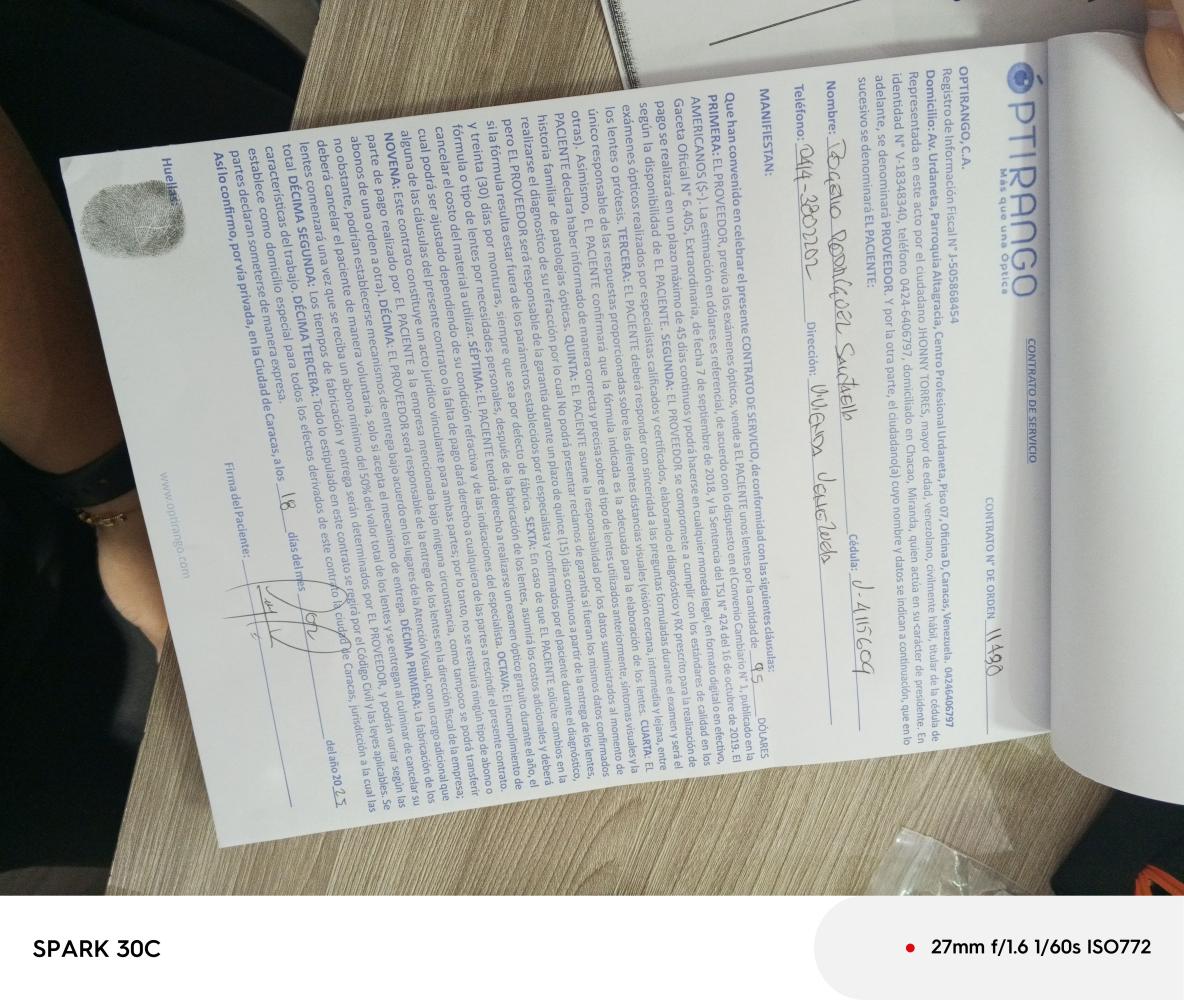 ÓPTIRANGO
Más que una Óptica
CONTRATO DE SERVICIO
CONTRATO N° DE ORDEN 11490
OPTIRANGO, C.A.
Registro de Información Fiscal N° J-505868454
Domicilio: Av. Urdaneta, Parroquia Altagracia, Centro Profesional Urdaneta, Piso 07, Oficina D, Caracas, Venezuela. 04246406797
Representada en este acto por el ciudadano JHONNY TORRES, mayor de edad, venezolano, civilmente hábil, titular de la cédula de
identidad N° V-18348340, teléfono 0424-6406797, domiciliado en Chacao, Miranda, quien actúa en su carácter de presidente. En
adelante, se denominará PROVEEDOR. Y por la otra parte, el ciudadano(a) cuyo nombre y datos se indican a continuación, que en lo
sucesivo se denominará EL PACIENTE:
Nombre: Cédula:
Teléfono: 0414-3802202 Dirección:
MANIFIESTAN:
Que han convenido en celebrar el presente CONTRATO DE SERVICIO, de conformidad con las siguientes cláusulas:
PRIMERA: EL PROVEEDOR, previo a los exámenes ópticos, vende a EL PACIENTE unos lentes por la cantidad de 95 DÓLARES
AMERICANOS ($-). La estimación en dólares es referencial, de acuerdo con lo dispuesto en el Convenio Cambiario N° 1, publicado en la
Gaceta Oficial N° 6.405, Extraordinaria, de fecha 7 de septiembre de 2018, y la Sentencia del TSJ N° 424 del 16 de octubre de 2019. El
pago se realizará en un plazo máximo de 45 días continuos y podrá hacerse en cualquier moneda legal, en formato digital o en efectivo,
según la disponibilidad de EL PACIENTE. SEGUNDA: EL PROVEEDOR se compromete a cumplir con los estándares de calidad en los
exámenes ópticos realizados por especialistas calificados y certificados, elaborando el diagnóstico y RX prescrito para la realización de
los lentes o prótesis. TERCERA: EL PACIENTE deberá responder con sinceridad a las preguntas formuladas durante el examen y será el
único responsable de las respuestas proporcionadas sobre las diferentes distancias visuales (visión cercana, intermedia y lejana, entre
otras). Asimismo, EL PACIENTE confirmará que la fórmula indicada es la adecuada para la elaboración de los lentes. CUARTA: EL
PACIENTE declara haber informado de manera correcta y precisa sobre el tipo de lentes utilizados anteriormente, síntomas visuales y la
historia familiar de patologías ópticas. QUINTA: EL PACIENTE asume la responsabilidad por los datos suministrados al momento de
realizarse el diagnostico de su refracción por lo cual No podrá presentar reclamos de garantía si fueran los mismos datos confirmados
pero EL PROVEEDOR será responsable de la garantía durante un plazo de quince (15) días continuos a partir de la entrega de los lentes,
si la fórmula resulta estar fuera de los parámetros establecidos por el especialista y confirmados por el paciente durante el diagnóstico,
y treinta (30) días por monturas, siempre que sea por defecto de fábrica. SEXTA: En caso de que EL PACIENTE solicite cambios en la
fórmula o tipo de lentes por necesidades personales, después de la fabricación de los lentes, asumirá los costos adicionales y deberá
cancelar el costo del material a utilizar. SÉPTIMA: EL PACIENTE tendrá derecho a realizarse un examen óptico gratuito durante el año, el
cual podrá ser ajustado dependiendo de su condición refractiva y de las indicaciones del especialista. OCTAVA: El incumplimiento de
alguna de las cláusulas del presente contrato o la falta de pago dará derecho a cualquiera de las partes a rescindir el presente contrato.
NOVENA: Este contrato constituye un acto jurídico vinculante para ambas partes; por lo tanto, no se restituirá ningún tipo de abono o
parte de pago realizado por EL PACIENTE a la empresa mencionada bajo ninguna circunstancia, como tampoco se podrá transferir
abonos de una orden a otra). DÉCIMA: EL PROVEEDOR será responsable de la entrega de los lentes en la dirección fiscal de la empresa;
no obstante, podrían establecerse mecanismos de entrega bajo acuerdo en los lugares de la Atención Visual, con un cargo adicional que
deberá cancelar el paciente de manera voluntaria, solo si acepta el mecanismo de entrega. DÉCIMA PRIMERA: La fabricación de los
lentes comenzará una vez que se reciba un abono mínimo del 50% del valor total de los lentes y se entregan al culminar de cancelar su
total DÉCIMA SEGUNDA: Los tiempos de fabricación y entrega serán determinados por EL PROVEEDOR, y podrán variar según las
características del trabajo. DÉCIMA TERCERA: Todo lo estipulado en este contrato se regirá por el Código Civil y las leyes aplicables. Se
establece como domicilio especial para todos los efectos derivados de este contrato la ciudad de Caracas, jurisdicción a la cual las
partes declaran someterse de manera expresa.
Así lo confirmo, por vía privada, en la Ciudad de Caracas, a los 18 días del mes del año 2025
Huellas
Firma del Paciente:
www.optirango.com
SPARK 30C
27mm f/1.6 1/60s ISO772